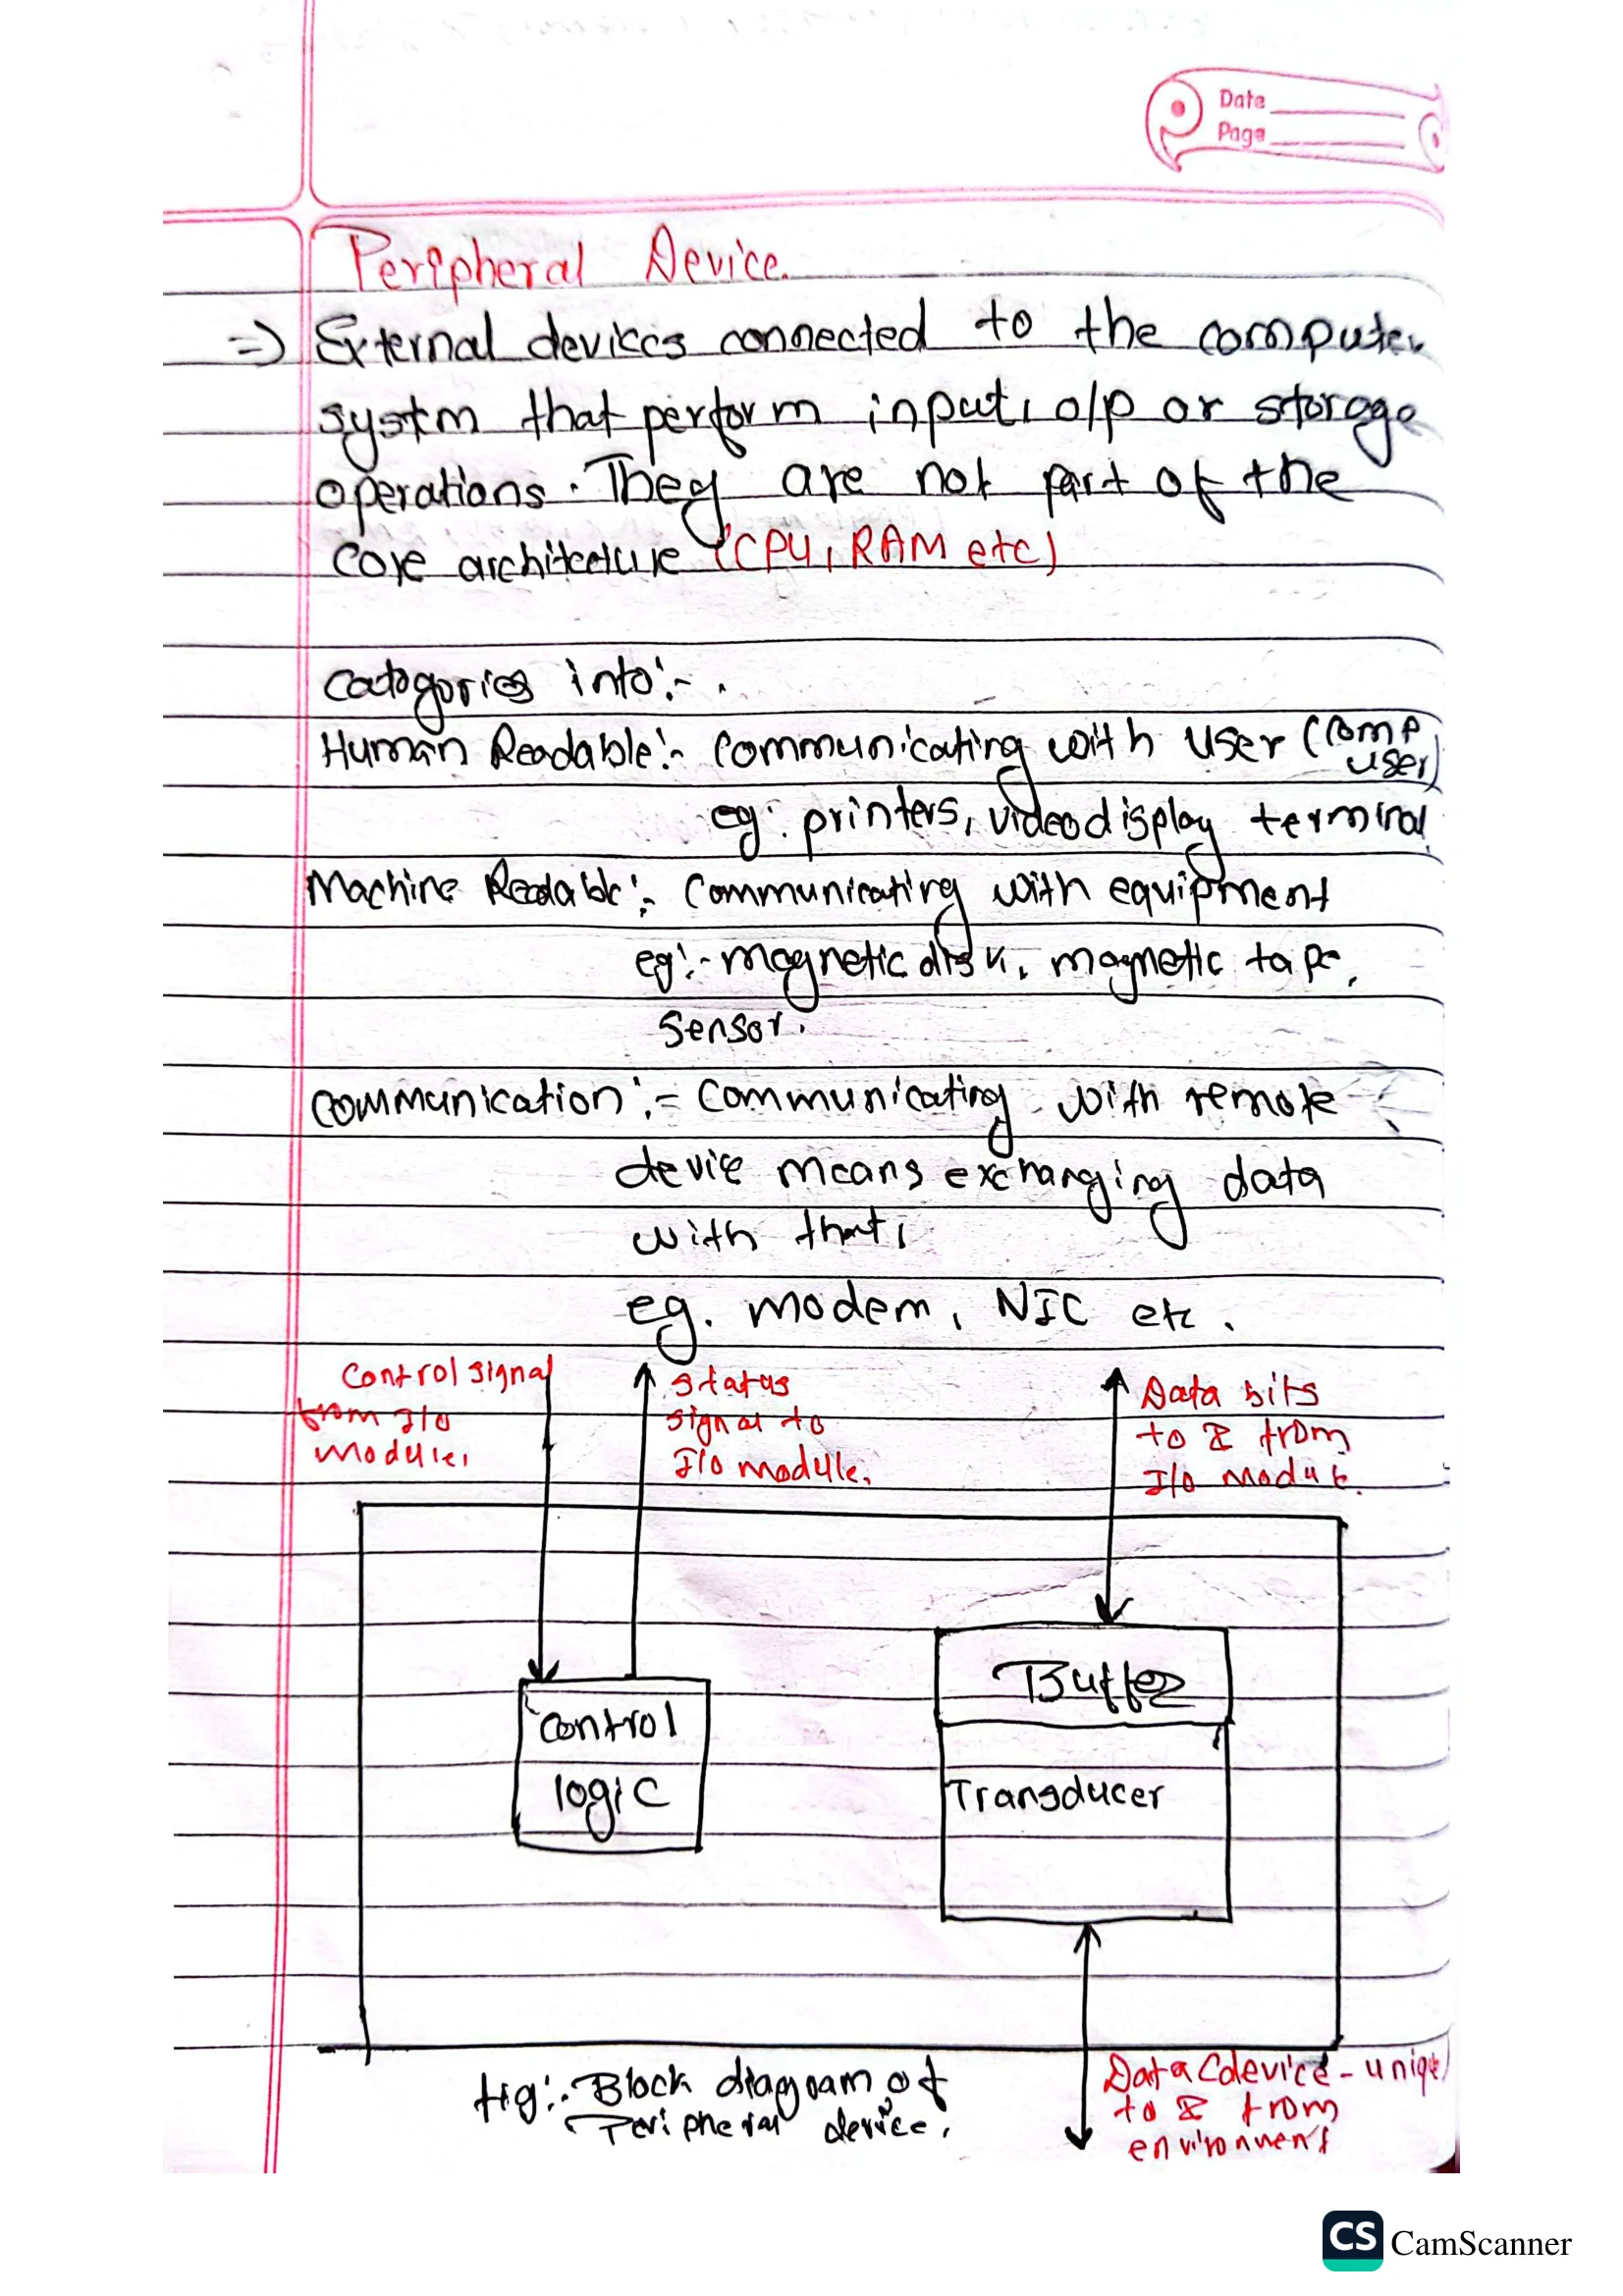 Date
Page
Peripheral Device.
=> External devices connected to the computer
system that perform input, o/p or storage
operations. They are not part of the
core architecture (CPU, RAM etc)
categories into:- .
Human Readable:- communicating with user (comp
user)
eg: printers, video display terminal
Machine Readable:- communicating with equipment
eg:- magnetic disk, magnetic tape,
sensor.
communication:- communicating with remote
device means exchanging data
with that,
eg. modem, NIC etc.
control signal
from I/O
module,
status
signal to
I/O module.
Data bits
to & from
I/O module.
Buffer
control
logic
Transducer
fig:- Block diagram of
Peripheral device.
Data (device-unique)
to & from
environment
CS CamScanner